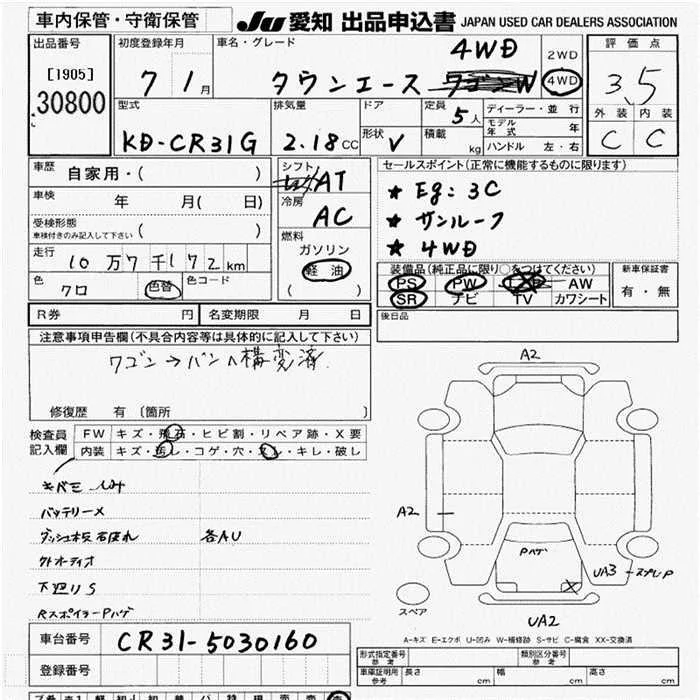 車内保管・守衛保管
JU 愛知 出品申込書 JAPAN USED CAR DEALERS ASSOCIATION
出品番号
[1905]
30800
初度登録年月
7 1月
車名・グレード
タウンエース 4WD
2WD
4WD
評価点
3.5
外装 内装
C C
型式
KD-CR31G
排気量
2.18CC
ドア
形状 V
定員 5人
積載 kg
ディーラー・並行
モデル年式 年
ハンドル 左・右
車歴 自家用・( )
車検 年 月( 日)
受検形態
車検付きのみ記入して下さい ( )
走行
10万7千172km
色 クロ 色替 色コード
シフト
AT
冷房
AC
燃料
ガソリン
軽油
( )
セールスポイント(正常に機能するものに限ります)
★ Eg:3C
★ サンルーフ
★ 4WD
装備品(純正品に限り○をつけてください)
PS PW AW
SR ナビ TV カワシート
新車保証書
有・無
後日品
R券 円 名変期限 月 日
注意事項申告欄(不具合内容等は具体的に記入して下さい)
ワゴン→バンへ構変済
修復歴 有 [箇所 ]
検査員
記入欄
FW キズ・飛石・ヒビ割・リペア跡・X要
内装 キズ・汚レ・コゲ・穴・スレ・キレ・破レ
バッテリーメ
ダッシュ板 各AU
外オーディオ
下廻りS
RスポイラーPハゲ
A2
A2
Pハゲ
UA3-スプレP
UA2
スペア
A-キズ E-エクボ U-凹み W-補修跡 S-サビ C-腐食 XX-交換済
車台番号 CR31-5030160
登録番号
形式指定番号
参考
類別区分番号
参考
車庫証明用
参考
長さ cm 幅 cm 高さ cm